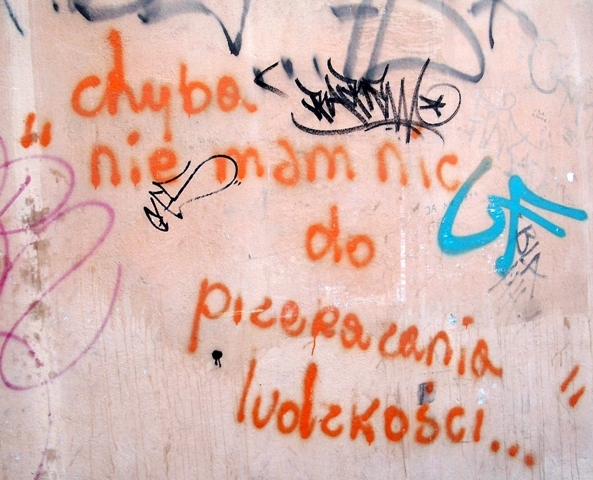 "chyba
nie mam nic
do
przekazania
ludzkości..."